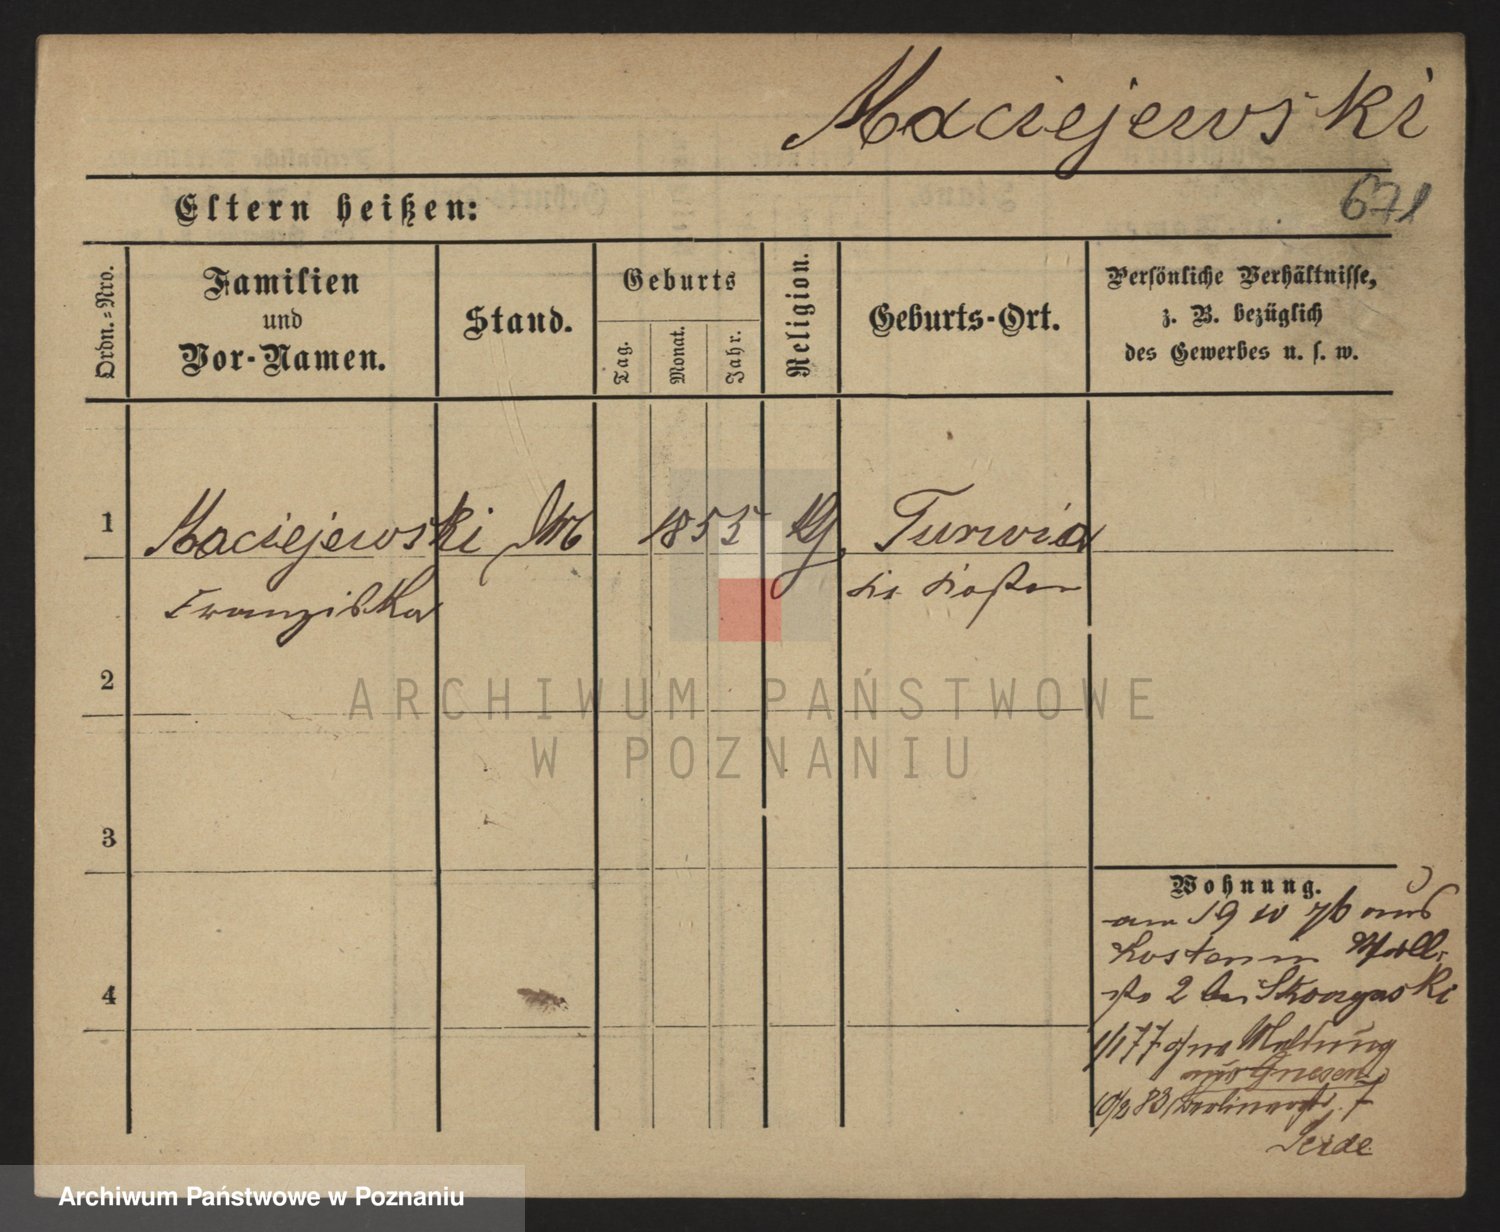 Maciejewski
671
Eltern heißen:
Ordn.-Nro.
Familien
und
Vor-Namen.
Stand.
Geburts
Tag.
Monat.
Jahr.
Religion.
Geburts-Ort.
Persönliche Verhältnisse,
z. B. bezüglich
des Gewerbes u. s. w.
1
Maciejewski
1855
Turwia
Franziska
Kr. Kosten
2
ARCHIWUM PAŃSTWOWE
W POZNANIU
3
Wohnung.
am 19 10 76 aus
Kosten
4
2 bei
1/1 77 ohne Meldung
aus Gnesen
10/2 83 Berlinerstr. 7
Archiwum Państwowe w Poznaniu